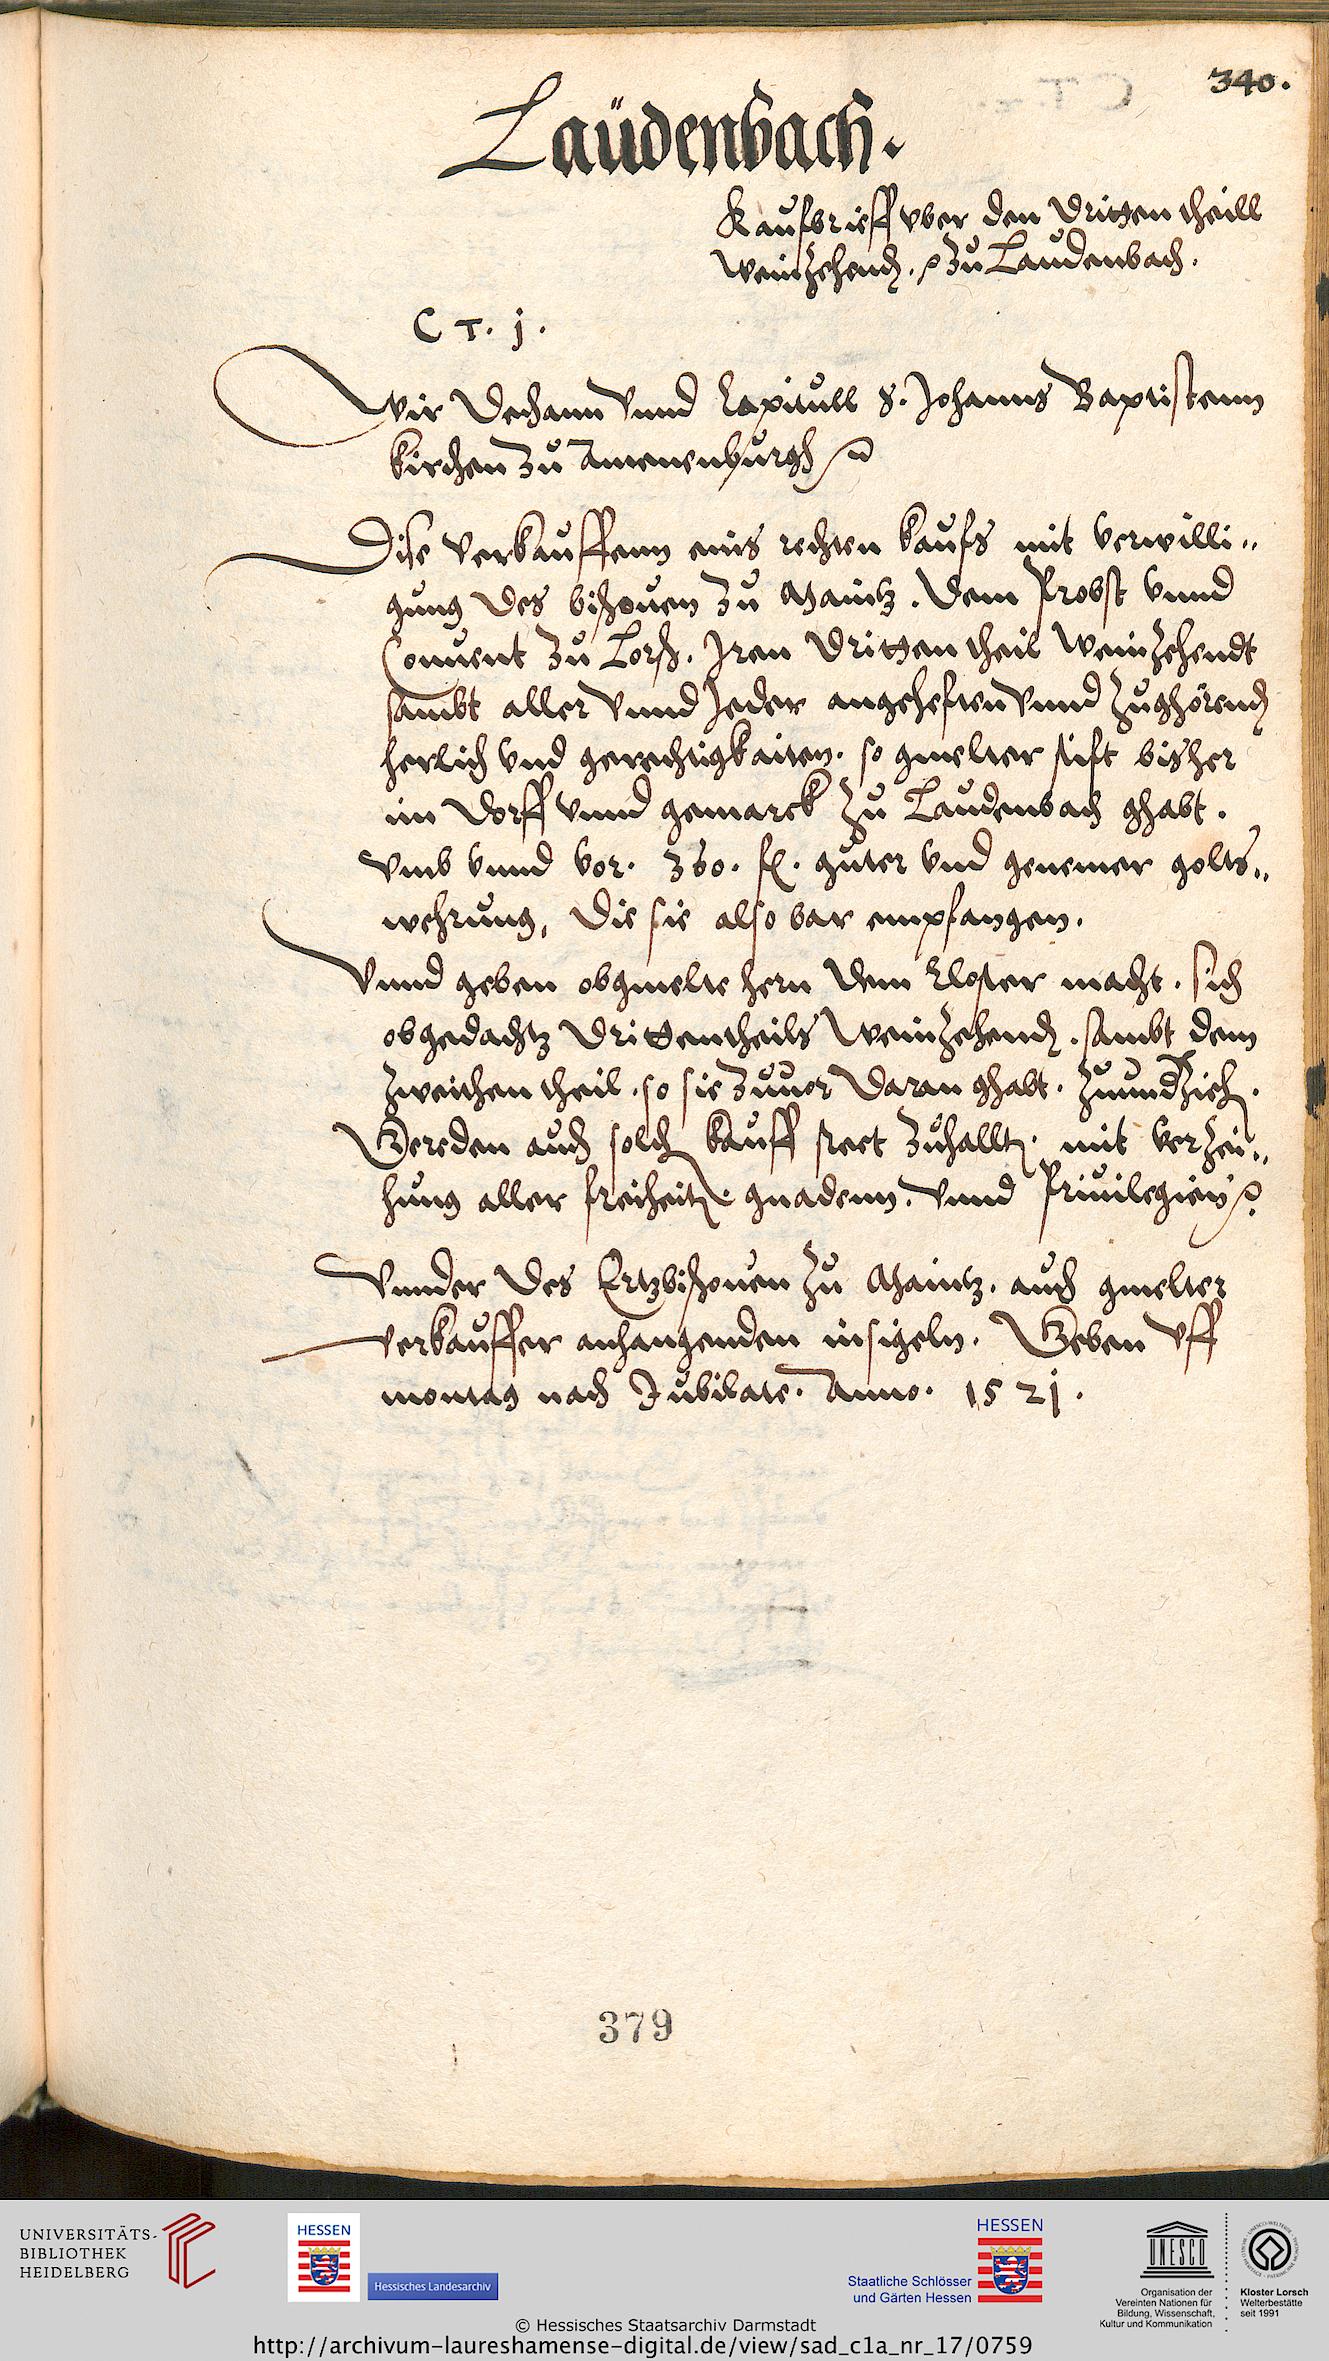 340.
Laüdenbach.
Kaufbrieff vber den dritten theill
Weinzehend. zu Laudenbach.
C T. j.
Wir Dechann vnnd Capitull S. Johanns Baptistenn
kirchen zu Amenenburgh
Dise verkauffenn eins rechten kaufs mit verwilli„
gung des bischouen zu Maintz. dem Probst vnnd
Conuent zu Lorsch. Iren dritten theil Weinzehendt
sambt aller vnnd Jeder angehefften vnnd zughörend
herlich vnd gerechtigkaiten. so gmelter stift bisher
im dorff vnnd gemarck zu Laudenbach ghabt.
vmb vnnd vor. 360. fl. guter vnd genemer golts„
wehrung, die sie also bar empfangen.
Vnnd geben obgmelte hern dem Closter macht. sich
obgedachtz drittentheils Weinzehend. sambt dem
zweichen theil. so sie zuuor daran ghabt.
Gereden auch solch kauff steet zuhallt. mit verzei„
hung aller freiheit. gnadenn. vnnd Priuilegien
Vnnder des Ertzbischouen zu Maintz. auch gmelter
verkauffer anhangenden insigeln. Geben vff
montag nach Jubilate. Anno. 1521.
379
UNIVERSITÄTS-
BIBLIOTHEK
HEIDELBERG
HESSEN
Hessisches Landesarchiv
HESSEN
Staatliche Schlösser
und Gärten Hessen
UNESCO
Organisation der
Vereinten Nationen für
Bildung, Wissenschaft,
Kultur und Kommunikation
Kloster Lorsch
Welterbestätte
seit 1991
© Hessisches Staatsarchiv Darmstadt
http://archivum-laureshamense-digital.de/view/sad_c1a_nr_17/0759